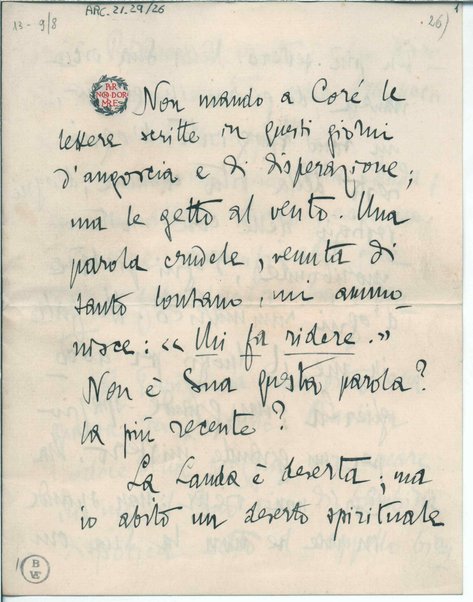 ARC. 21. 29/26
13 - 9/8
1
26)
PER
NON DOR
MIRE
Non mando a Coré le
lettere scritte in questi giorni
d'angoscia e di disperazione;
ma le getto al vento. Una
parola crudele, venuta di
tanto lontano, mi ammo-
nisce: « Mi fa ridere. »
Non è Sua questa parola?
la più recente?
La Landa è deserta; ma
io abito un deserto spirituale
B
VE